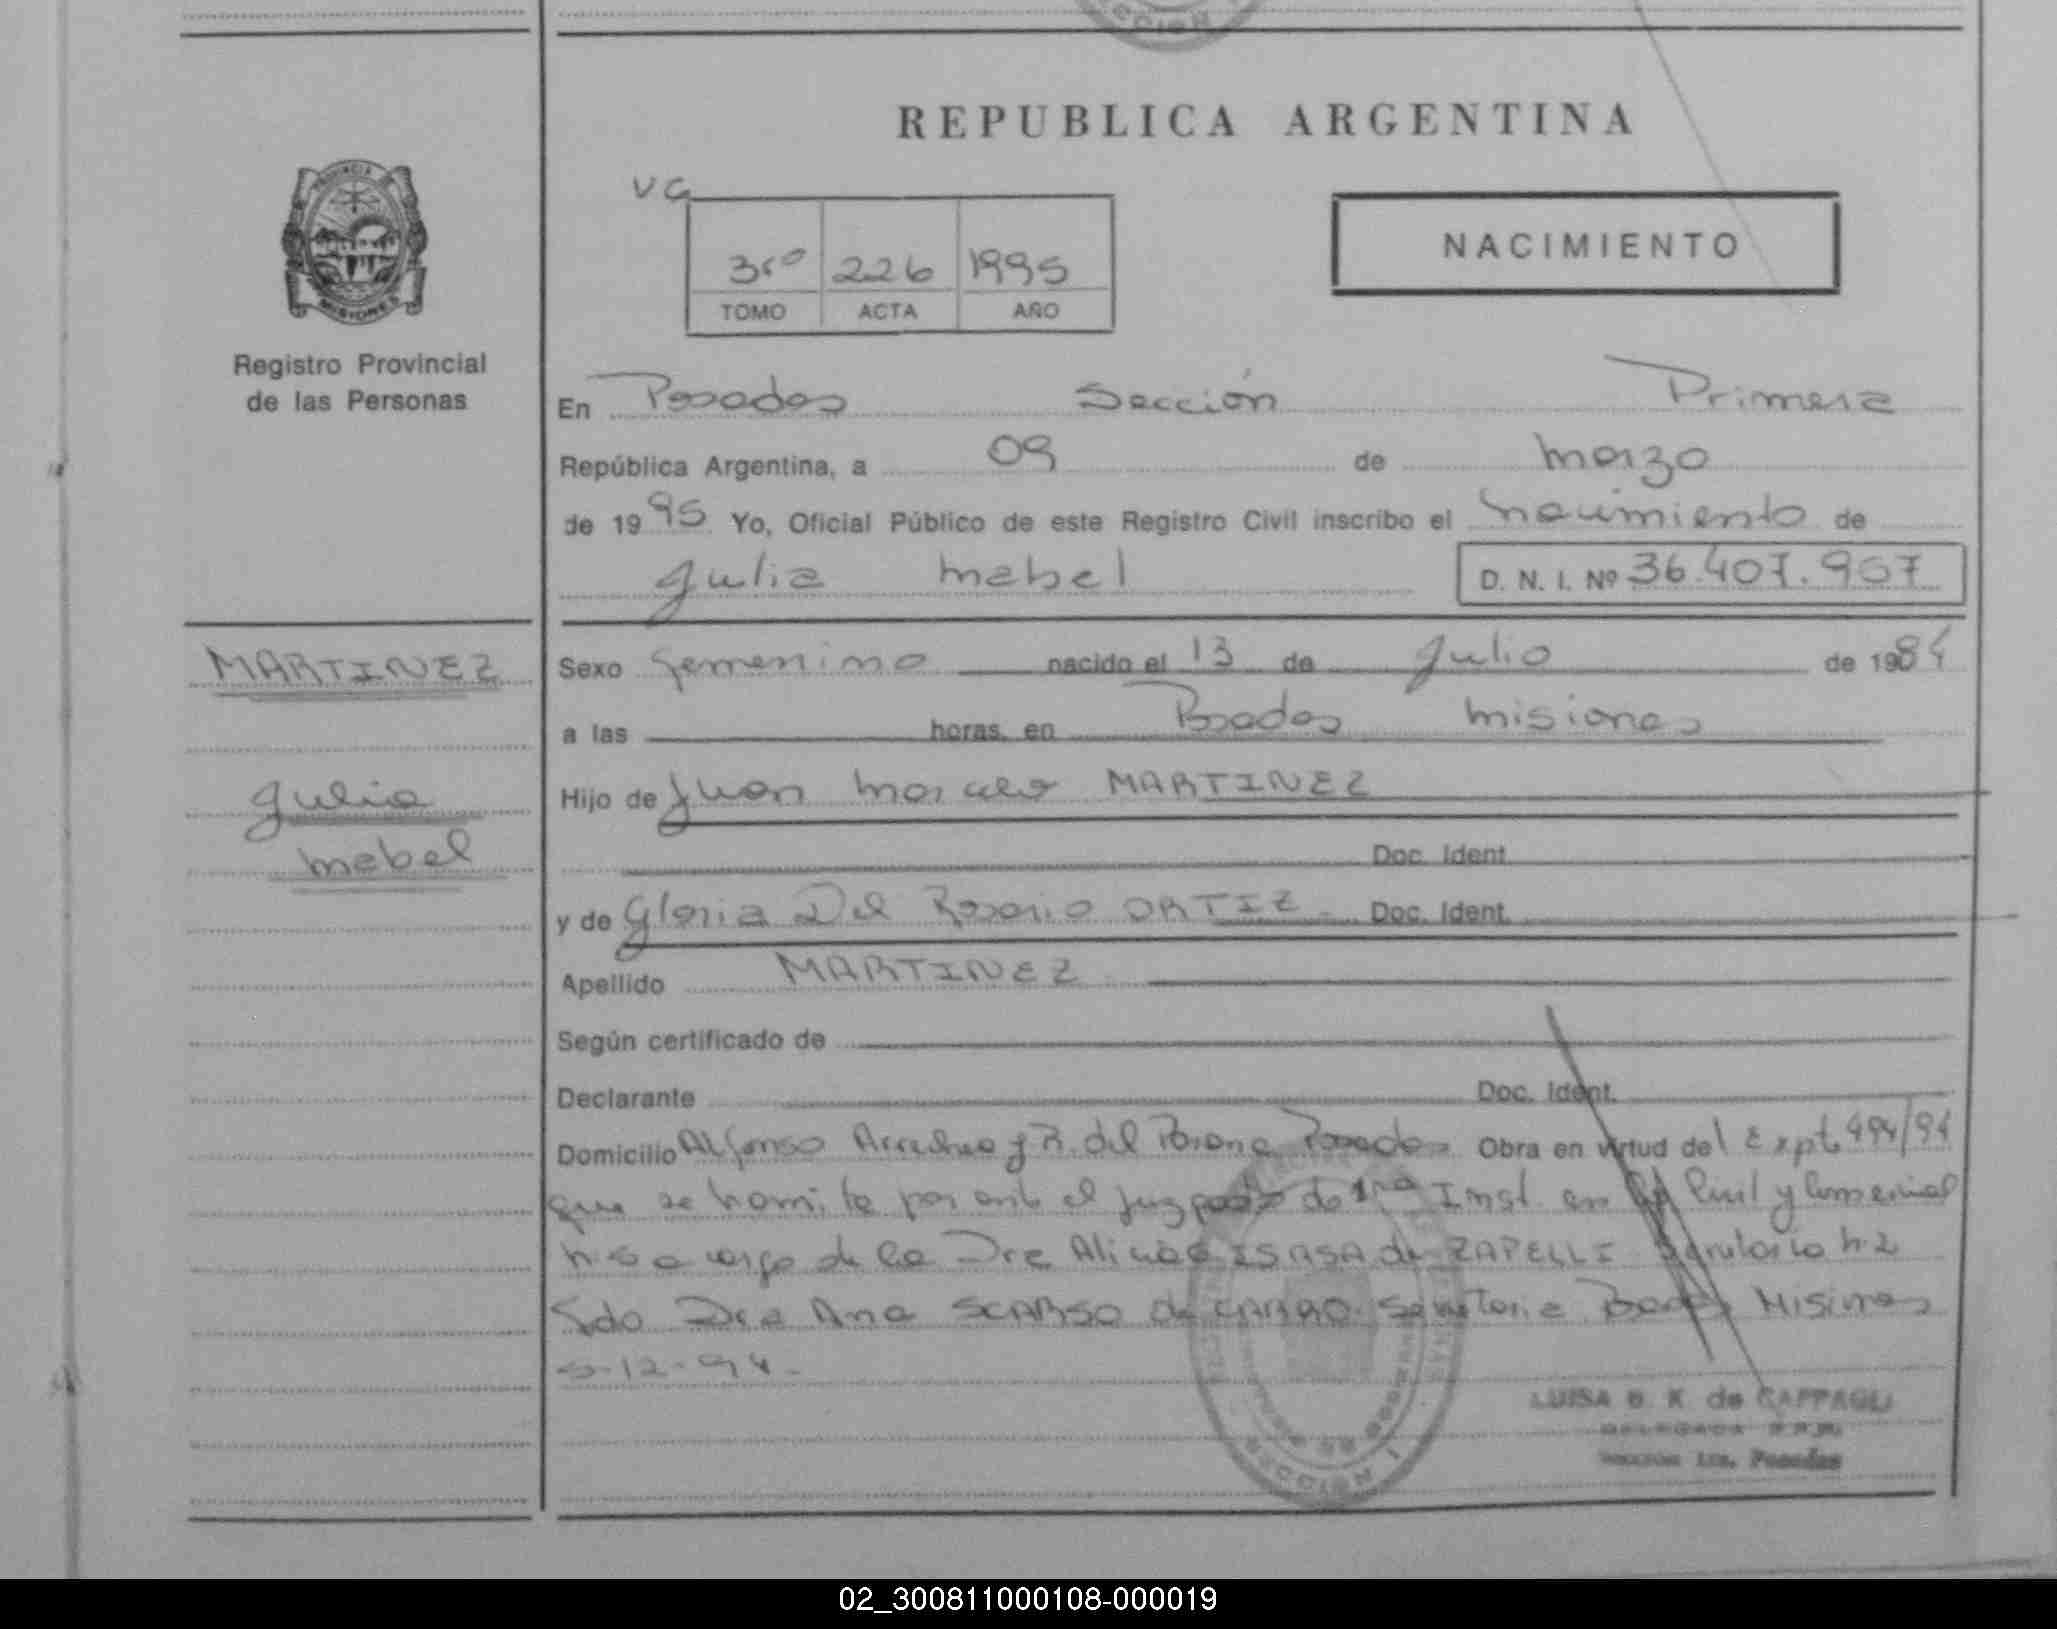 REPUBLICA ARGENTINA
PROVINCIA DE
MISIONES
Registro Provincial
de las Personas
VG
3ro 226 1995
TOMO ACTA AÑO
NACIMIENTO
En Posadas Sección Primera
República Argentina, a 09 de marzo
de 1995 Yo, Oficial Público de este Registro Civil inscribo el nacimiento de
Julia Mabel D. N. I. Nº 36.407.967
MARTINEZ
Julia
Mabel
Sexo femenino nacido el 13 de Julio de 1984
a las horas, en Posadas Misiones
Hijo de Juan Marcelo MARTINEZ
Doc. Ident.
y de Gloria Del Rosario ORTIZ - Doc. Ident.
Apellido MARTINEZ
Según certificado de
Declarante Doc. Ident.
Domicilio Alfonso y R. del Posadas Obra en virtud del Expte 494/94
que se tramita por ante el Juzgado de 1ra Inst. en lo Civil y Comercial
a cargo de la Dra Alicia ISASA de ZAPELLI Secretaria n 2
Fdo Dra Ana SCARSO de Secretaria Posadas Misiones
5-12-94-
LUISA B. K. de CAPPAGLI
DELEGADA R.P.P.
SECCION 1ra. Posadas
SECCION 1
02_300811000108-000019